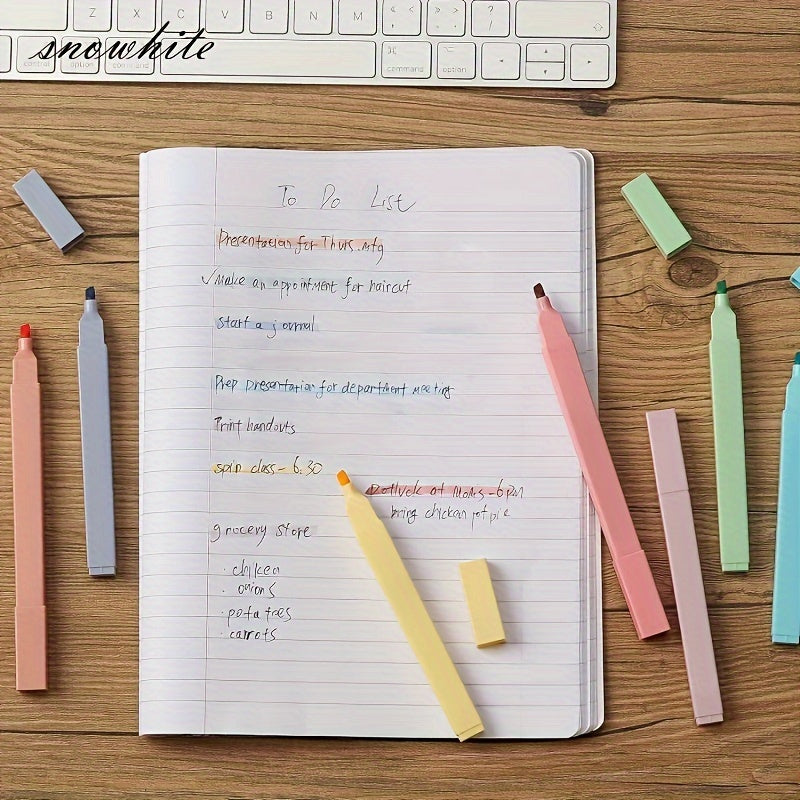 Z X C V B N M < >
snowhite
control option command command option
To Do List
Presentation for Thurs. mtg
✓Make an appointment for haircut
Start a journal
Prep presentation for department meeting
Print handouts
spin class - 6:30
Potluck at Moms - 6pm
bring chicken pot pie
grocery store
· chiken
· onions
· potatoes
· carrots